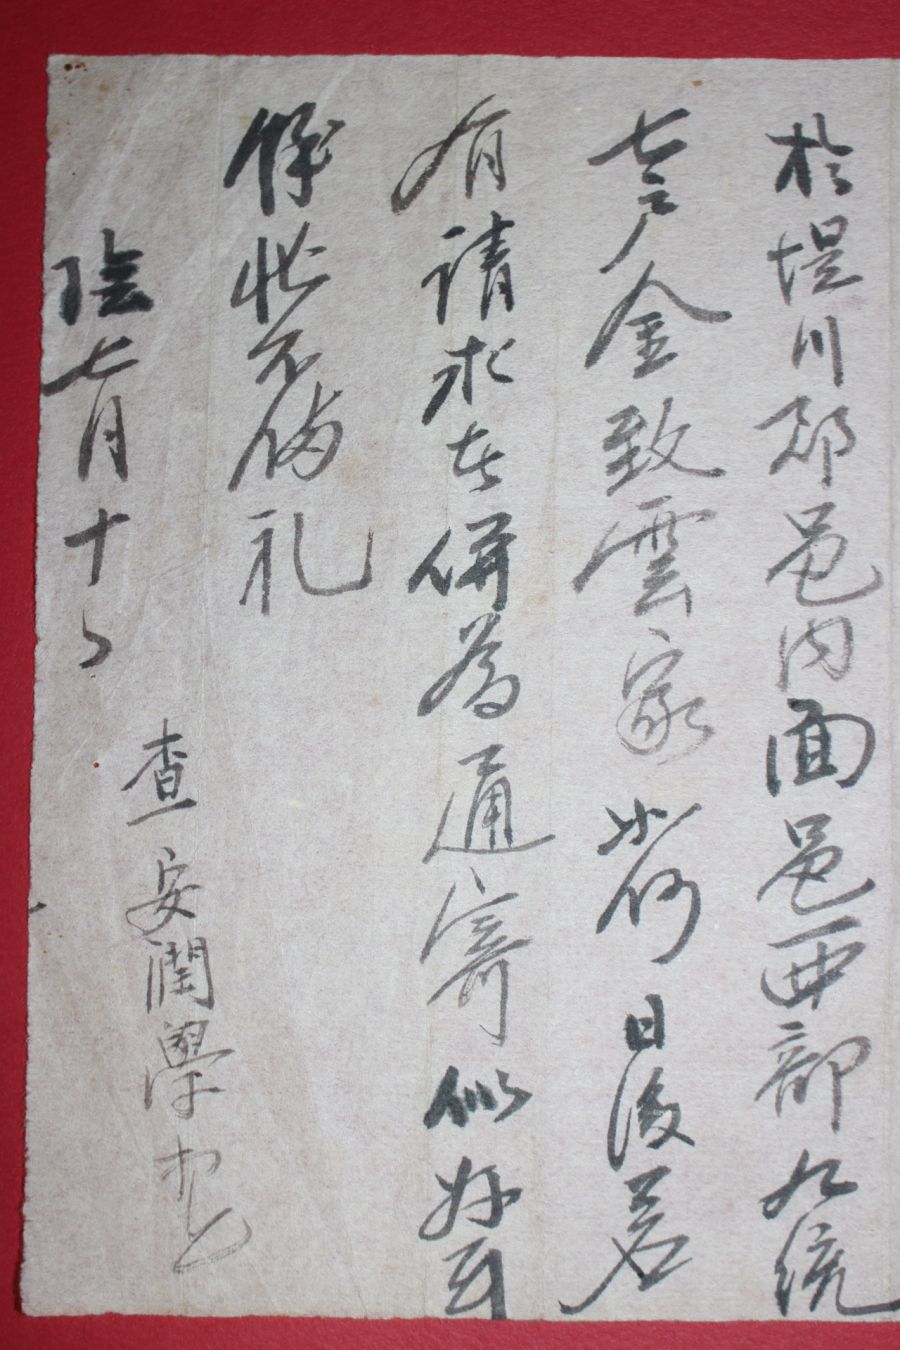 於堤川郡邑内面邑西部九統
七戶金致雲家如何日後若
有請求去併爲通寄似好耳
餘悵不備礼
陰七月十二
查 安潤學